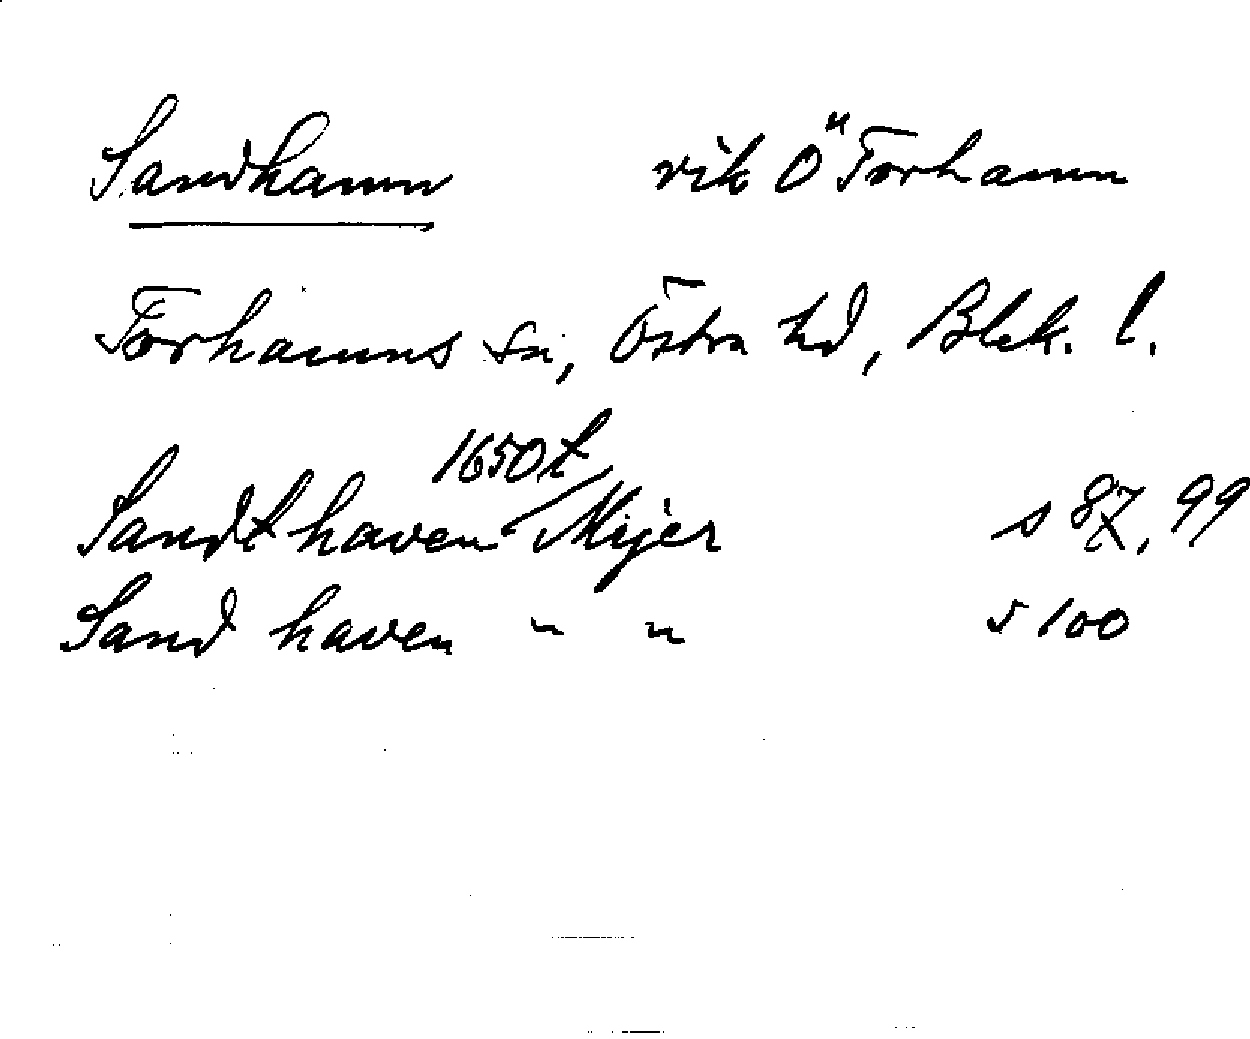 Sandhamn vik Ö" Torhamn
Torhamns sn, Östra hd, Blek. l.
1650t
Sandthaven Mejer s 87, 99
Sand haven " " s 100